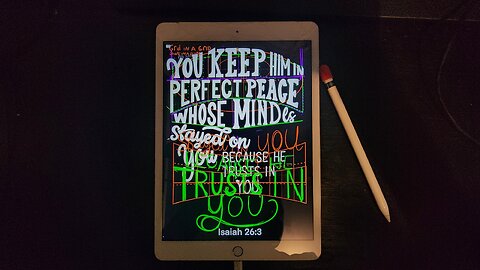 YOU KEEP HIM IN
PERFECT PEACE
WHOSE MIND is
stayed on YOU
You BECAUSE HE
TRUSTS IN
YOU
TRUSTS IN
YOU
Isaiah 26:3